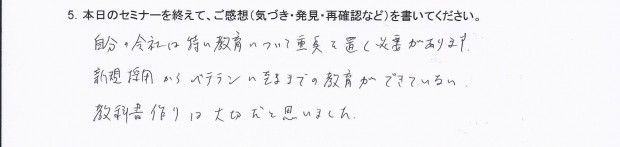 5. 本日のセミナーを終えて、ご感想（気づき・発見・再確認など）を書いてください。
自分の会社は特に教育について重点を置く必要があります
新規採用からベテランに至るまでの教育ができていない.
教科書作りは大切だと思いました.